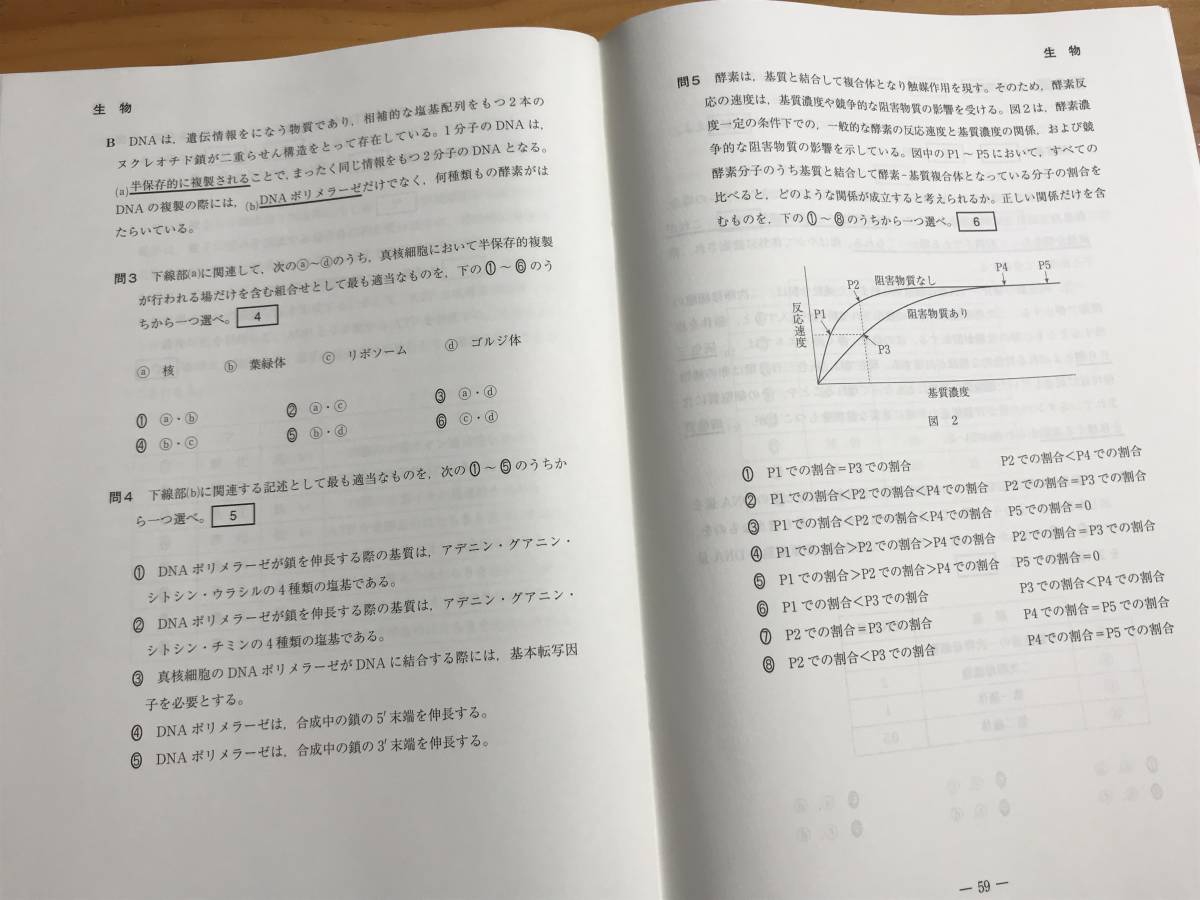 生　物
B　DNAは，遺伝情報をになう物質であり，相補的な塩基配列をもつ2本の
ヌクレオチド鎖が二重らせん構造をとって存在している。1分子のDNAは，
(a)半保存的に複製されることで，まったく同じ情報をもつ2分子のDNAとなる。
DNAの複製の際には，(b)DNAポリメラーゼだけでなく，何種類もの酵素がは
たらいている。
問3　下線部(a)に関連して，次のⓐ～ⓓのうち，真核細胞において半保存的複製
が行われる場だけを含む組合せとして最も適当なものを，下の①～⑥のう
ちから一つ選べ。 4
ⓐ　核　ⓑ　葉緑体　ⓒ　リボソーム　ⓓ　ゴルジ体
①　ⓐ・ⓑ　②　ⓐ・ⓒ　③　ⓐ・ⓓ
④　ⓑ・ⓒ　⑤　ⓑ・ⓓ　⑥　ⓒ・ⓓ
問4　下線部(b)に関連する記述として最も適当なものを，次の①～⑤のうちか
ら一つ選べ。 5
①　DNAポリメラーゼが鎖を伸長する際の基質は，アデニン・グアニン・
シトシン・ウラシルの4種類の塩基である。
②　DNAポリメラーゼが鎖を伸長する際の基質は，アデニン・グアニン・
シトシン・チミンの4種類の塩基である。
③　真核細胞のDNAポリメラーゼがDNAに結合する際には，基本転写因
子を必要とする。
④　DNAポリメラーゼは，合成中の鎖の5′末端を伸長する。
⑤　DNAポリメラーゼは，合成中の鎖の3′末端を伸長する。
生　物
問5　酵素は，基質と結合して複合体となり触媒作用を現す。そのため，酵素反
応の速度は，基質濃度や競争的な阻害物質の影響を受ける。図2は，酵素濃
度一定の条件下での，一般的な酵素の反応速度と基質濃度の関係，および競
争的な阻害物質の影響を示している。図中のP1～P5において，すべての
酵素分子のうち基質と結合して酵素-基質複合体となっている分子の割合を
比べると，どのような関係が成立すると考えられるか。正しい関係だけを含
むものを，下の①～⑧のうちから一つ選べ。 6
P1
P2
阻害物質なし
P4
P5
阻害物質あり
P3
反応速度
基質濃度
図　2
①　P1での割合＝P3での割合　P2での割合＜P4での割合
②　P1での割合＜P2での割合＜P4での割合　P2での割合＝P3での割合
③　P1での割合＜P2での割合＜P4での割合　P5での割合＝0
④　P1での割合＞P2での割合＞P4での割合　P2での割合＝P3での割合
⑤　P1での割合＞P2での割合＞P4での割合　P5での割合＝0
⑥　P1での割合＜P3での割合　P3での割合＜P4での割合
⑦　P2での割合＝P3での割合　P4での割合＝P5での割合
⑧　P2での割合＜P3での割合　P4での割合＝P5での割合
― 59 ―